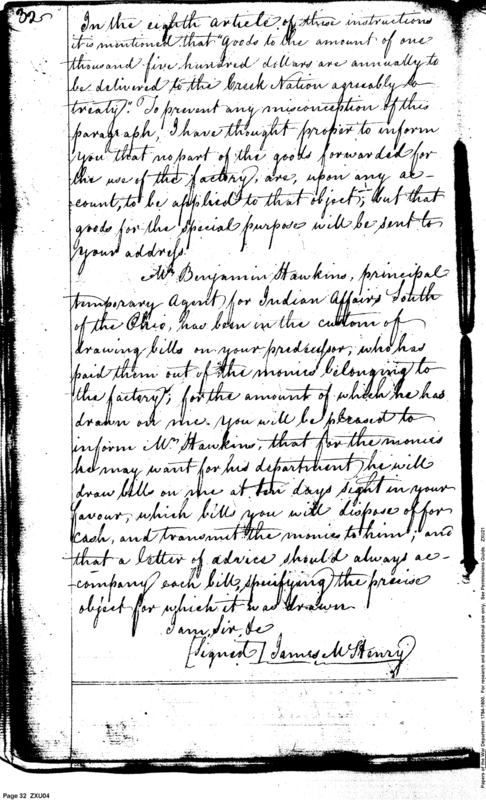 32
In the eighth article of these instructions
it is mentioned that "goods to the amount of one
thousand five hundred dollars are annually to
be delivered to the Creek Nation agreeably to
treaty." To prevent any misconception of this
paragraph, I have thought proper to inform
you that no part of the goods forwarded for
the use of the factory, are, upon any ac-
count, to be applied to that object; but that
goods for the special purpose will be sent to
your address.
Mr. Benjamin Hawkins, principal
temporary Agent for Indian Affairs South
of the Ohio, has been in the custom of
drawing bills on your predecessor, who has
paid them out of the monies belonging to
the factory; for the amount of which he has
drawn on me. you will be pleased to
inform Mr. Hawkins, that for the monies
he may want for his department he will
draw bills on me at ten days sight in your
favour, which bills you will dispose of for
cash, and transmit the monies to him; and
that a letter of advice should always ac-
company each bill, specifying the precise
object for which it was drawn
I am, Sir, &c
[Signed] James McHenry
Page 32 ZXU04
Papers of the War Department 1784-1800. For research and instructional use only. See Permissions Guide. ZXU21